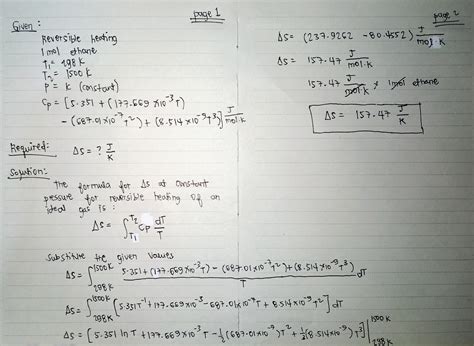 page 1
Given:
Reversible heating
1 mol ethane
T₁ = 298 K
T₂ = 1500 K
P = K (constant)
Cp = [5.351 + (177.669 x10⁻³ T)
− (687.01 x10⁻⁷ T²) + (8.514 x10⁻⁹ T³)] J/mol·K
Required: ΔS = ? J/K
Solution:
The formula for ΔS at constant
pressure for reversible heating of an
ideal gas is:
ΔS = ∫_{T₁}^{T₂} Cp dT/T
Substitute the given values
ΔS = ∫_{298K}^{1500K} 5.351 + (177.669 x10⁻³ T) − (687.01 x10⁻⁷ T²) + (8.514 x10⁻⁹ T³) / T dT
ΔS = ∫_{298K}^{1500K} [5.351 T⁻¹ + 177.669 x10⁻³ − 687.01 x10⁻⁷ T + 8.514 x10⁻⁹ T²] dT
ΔS = [5.351 ln T + 177.669 x10⁻³ T − ½ (687.01 x10⁻⁷) T² + ⅓ (8.514 x10⁻⁹) T³] |_{298K}^{1500K}
page 2
ΔS = (237.9262 − 80.4552) J/mol·K
ΔS = 157.47 J/mol·K
157.47 J/mol·K x 1mol ethane
ΔS = 157.47 J/K